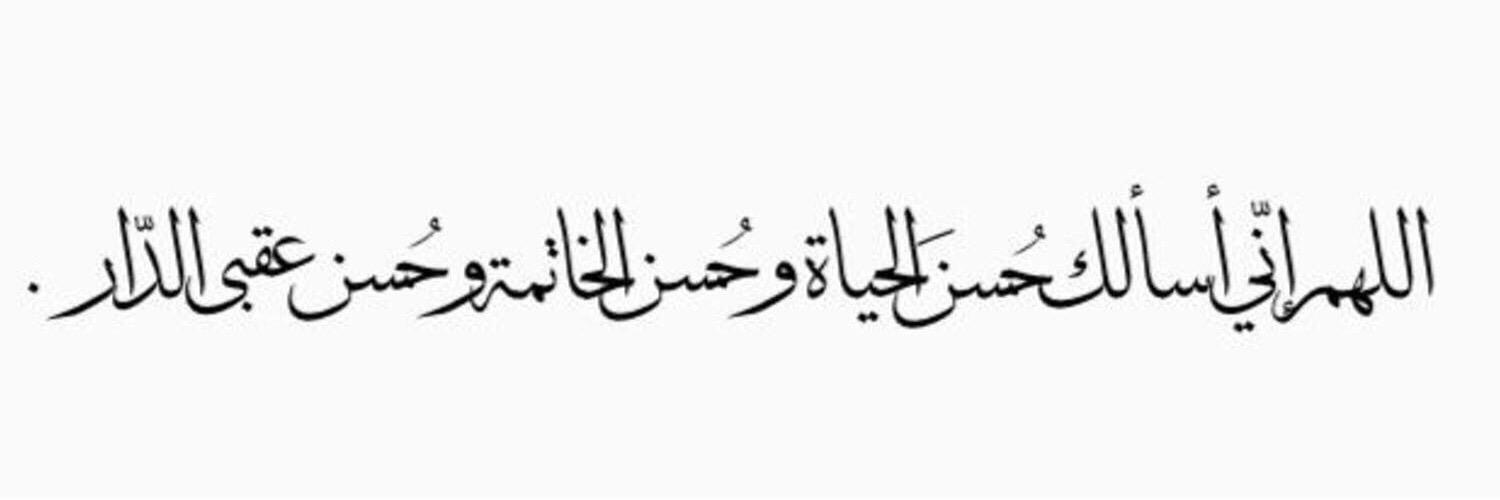 اللهم إنّي أسألك حُسنَ الحياة وحُسن الخاتمة وحُسن عقبى الدّار .